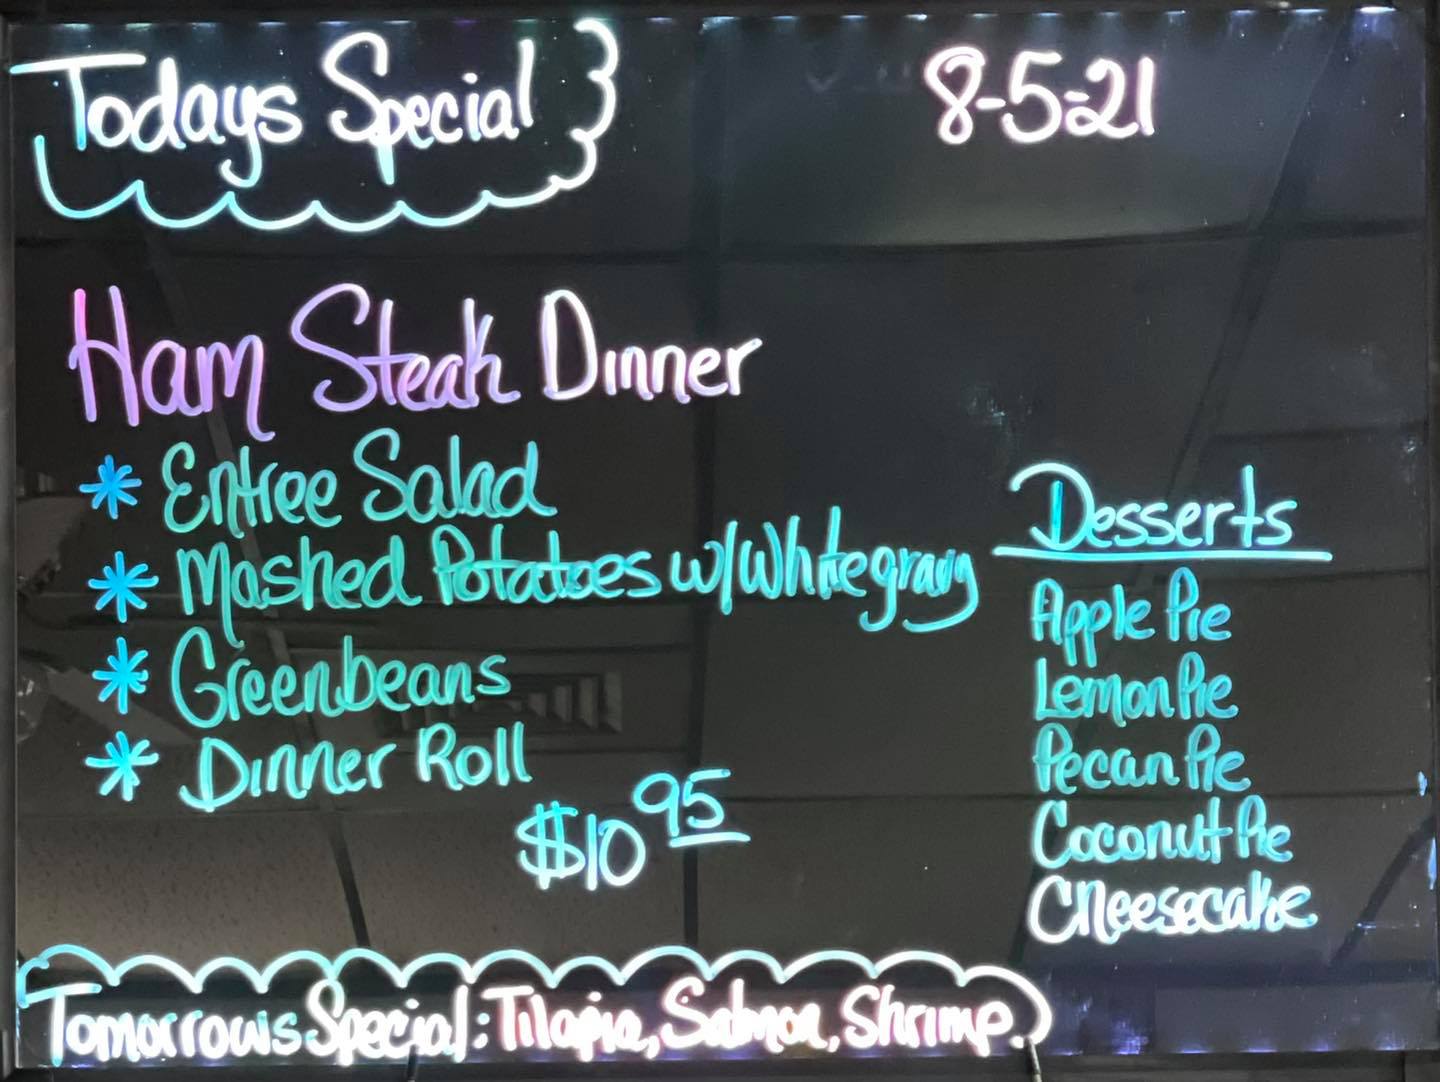 Todays Special
8-5-21
Ham Steak Dinner
* Entree Salad
* Mashed Potatoes w/White gravy
* Greenbeans
* Dinner Roll
$10 95
Desserts
Apple Pie
Lemon Pie
Pecan Pie
Coconut Pie
Cheesecake
Tomorrows Special: Tilapia, Salmon, Shrimp